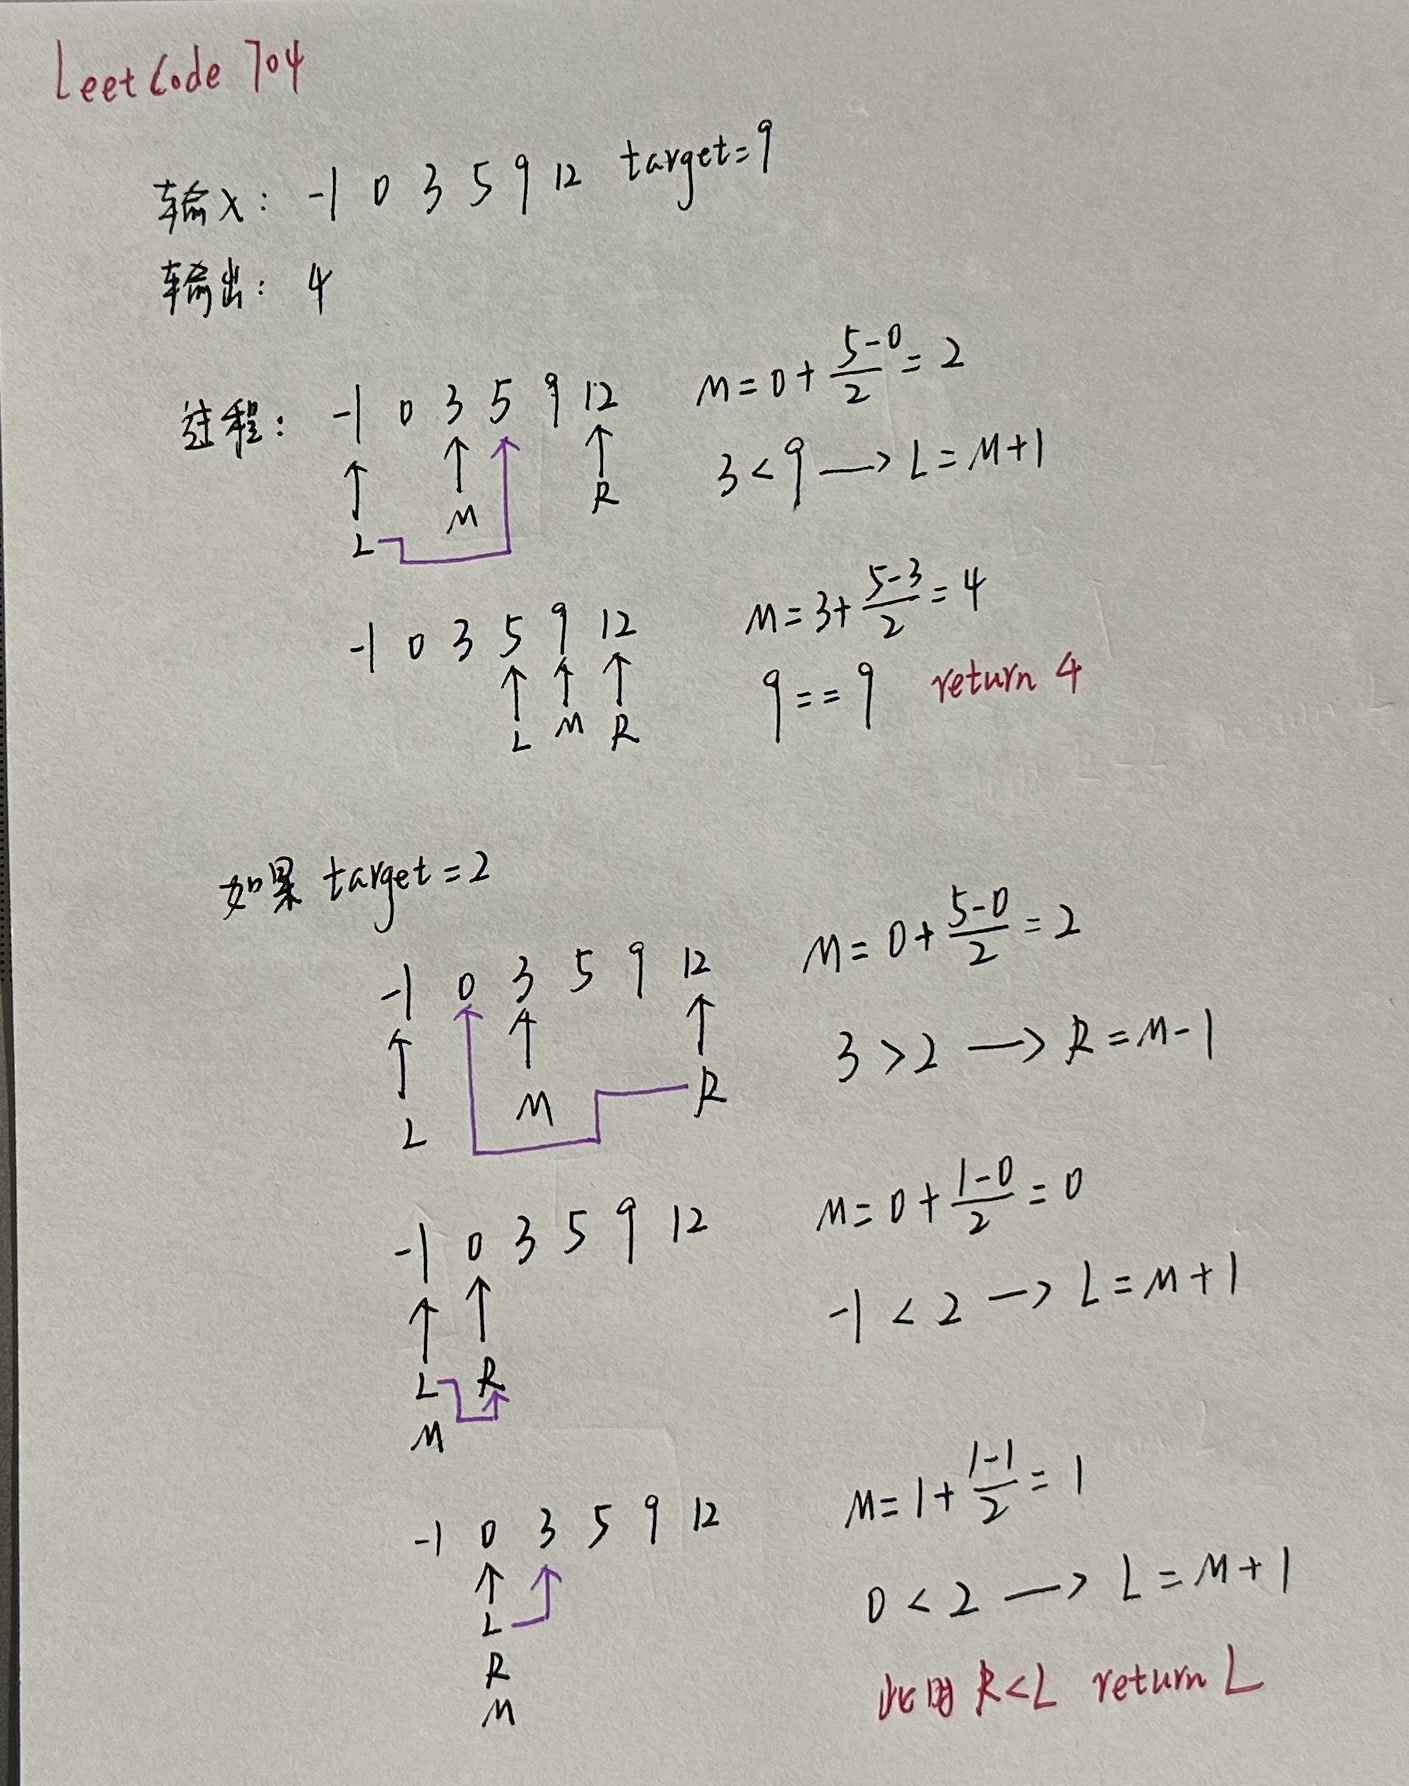 LeetCode 704
输入: -1 0 3 5 9 12 target=9
输出: 4
过程: -1 0 3 5 9 12 M=0+\frac{5-0}{2}=2
↑ ↑ ↑ 3<9 —> L=M+1
L M R
-1 0 3 5 9 12 M=3+\frac{5-3}{2}=4
↑ ↑ ↑ 9==9 return 4
L M R
如果 target=2
-1 0 3 5 9 12 M=0+\frac{5-0}{2}=2
↑ ↑ ↑ 3>2 —> R=M-1
L M R
-1 0 3 5 9 12 M=0+\frac{1-0}{2}=0
↑ ↑ -1<2 —> L=M+1
L R
M
-1 0 3 5 9 12 M=1+\frac{1-1}{2}=1
↑ 0<2 —> L=M+1
L
R 此时 R<L return L
M